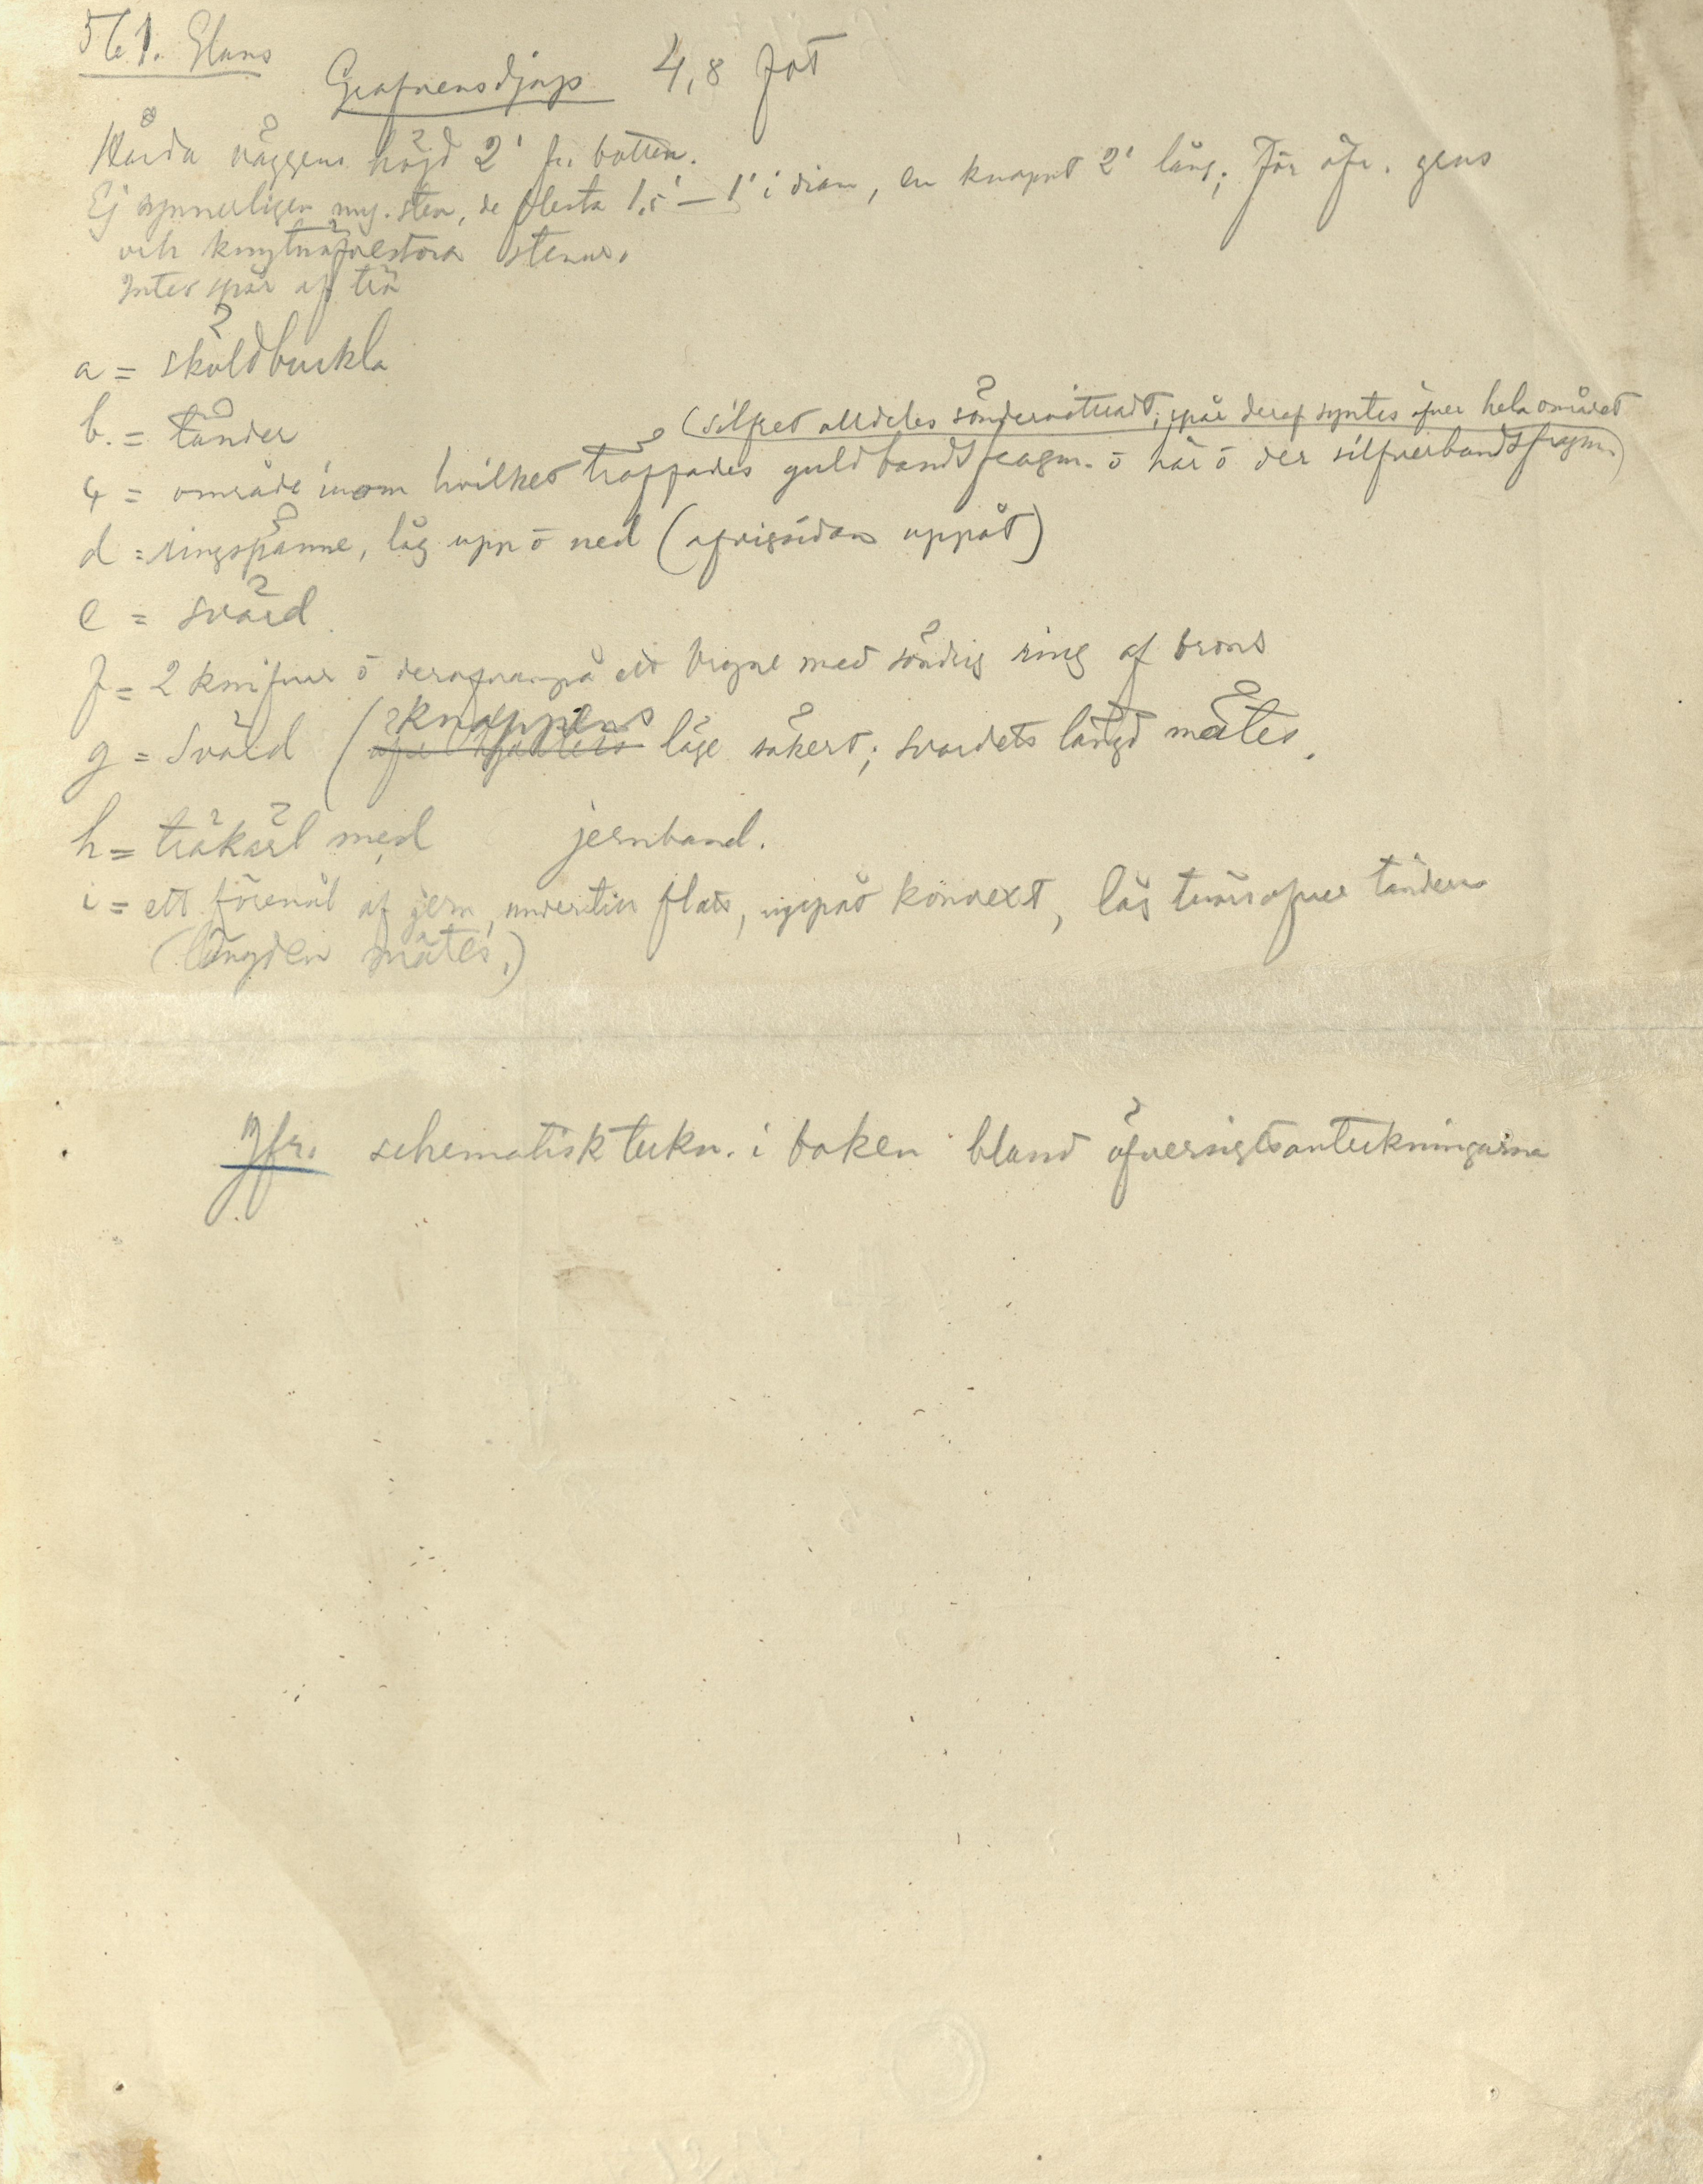 561. Glans
Grafvens djup 4,8 fot
Hårda väggens höjd 2' fr. botten.
Ej synnerligen myc. sten, de flesta 1,5' – 1' i diam, en knapt 2' lång; för öfr. grus
och knytnäfvestora stenar.
Intet spår af trä
a = sköldbuckla
b. = tänder
(silfret alldeles söndervittradt; spår deraf syntes öfver hela området
c = område inom hvilket träffades guldbandsfragm. o här o der silfverbandsfragm.)
d = ringspänne, låg upp o ned (afvigsidan uppåt)
e = svärd
f = 2 knifvar o derofvanpå ett bryne med söndrig ring af brons
g = Svärd (knappens läge säkert; svärdets längd mätes.
h = träkärl med jernband.
i = ett föremål af jern, undertill flatt, uppåt konvext, låg tvärsöfver tänderna
(längden mätes.)
Jfr. schematisk tekn. i boken bland öfversigtsanteckningarna